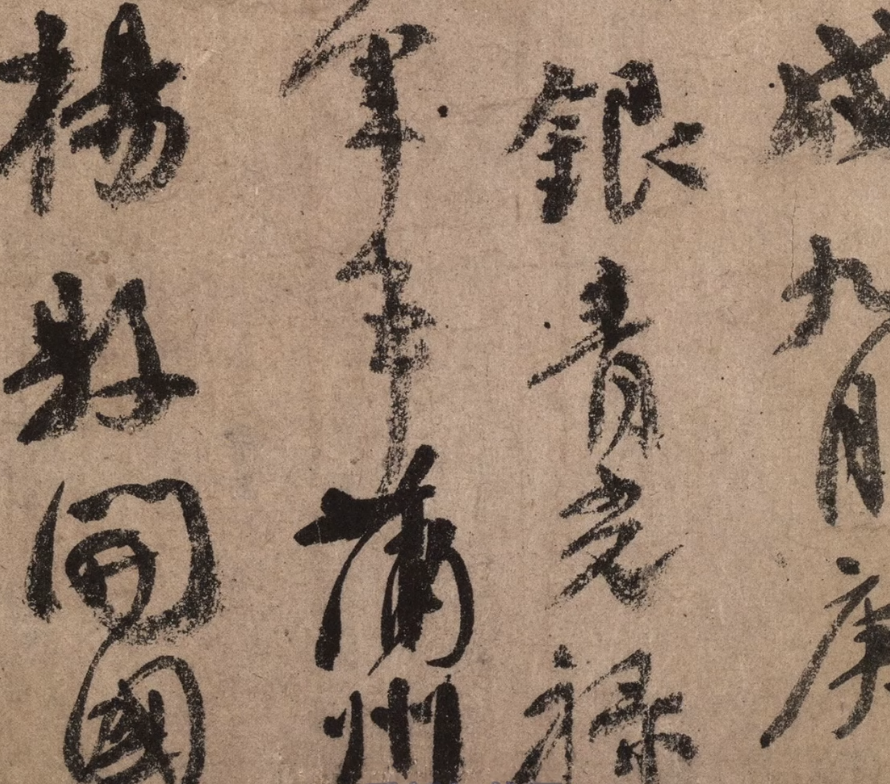 戌九月庚
銀青光祿
軍事蒲州
楊縣開國